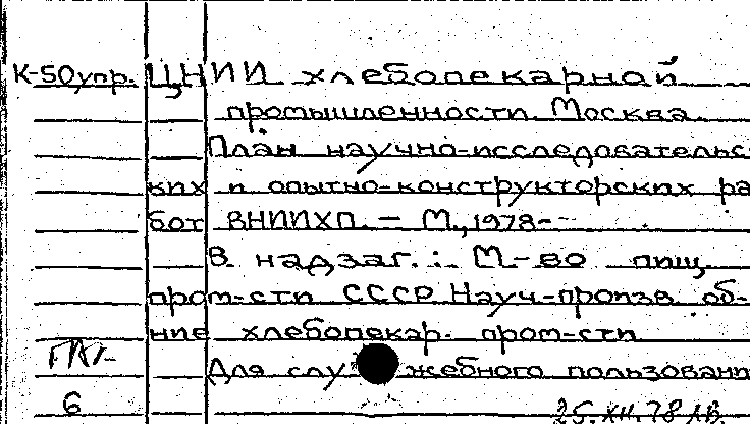 К-50упр. ЦНИИ хлебопекарной
промышленности. Москва.
План научно-исследовательс
ких и опытно-конструкторских ра
бот ВНИИХП. — М., 1978-
В надзаг.: М-во пищ.
пром-сти СССР Науч-произв об-
ние хлебопекар. пром-сти
Для служебного пользовани
6
25.XII.78